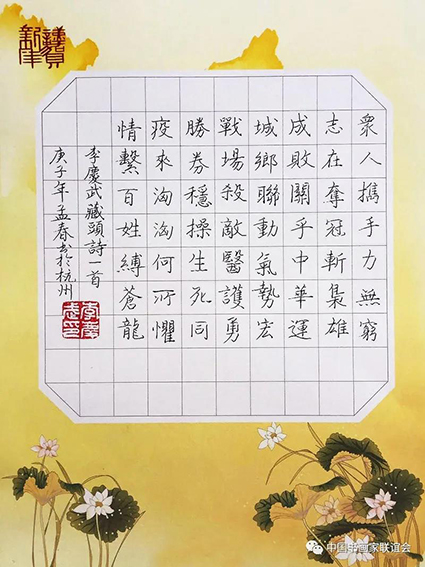 謹賀新年
衆人攜手力無窮
志在奪冠斬梟雄
成敗關乎中華運
城鄉聯動氣勢宏
戰場殺敵醫護勇
勝券穩操生死同
疫來洶洶何所懼
情繫百姓縛蒼龍
李慶武藏頭詩一首
庚子年孟春书於杭州
李慶武印
中国书画家联谊会